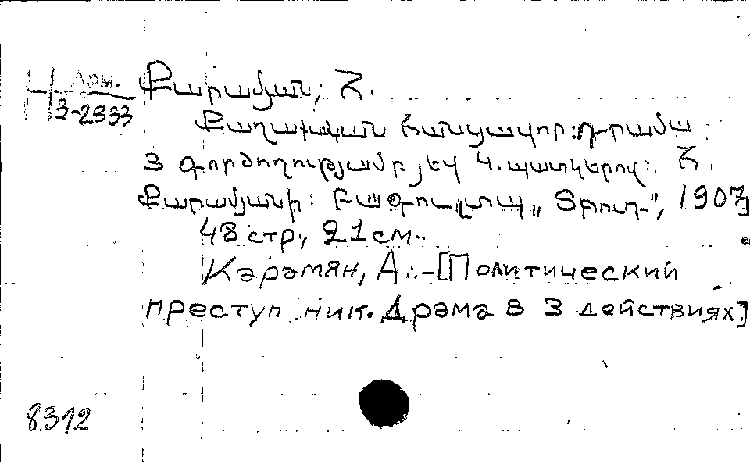 Арм. Քարամյան, Հ.
3-2333
Քաղաքական հանցավոր: դրամա:
3 գործողությամբ և 4 պատկերով: Հ.
Քարամյանի: Բագու, տպ „Տրուդ“, 1907
48 стр., 21 см.
Карамян, А. – [Политический
преступник. Драма в 3 действиях]
8312